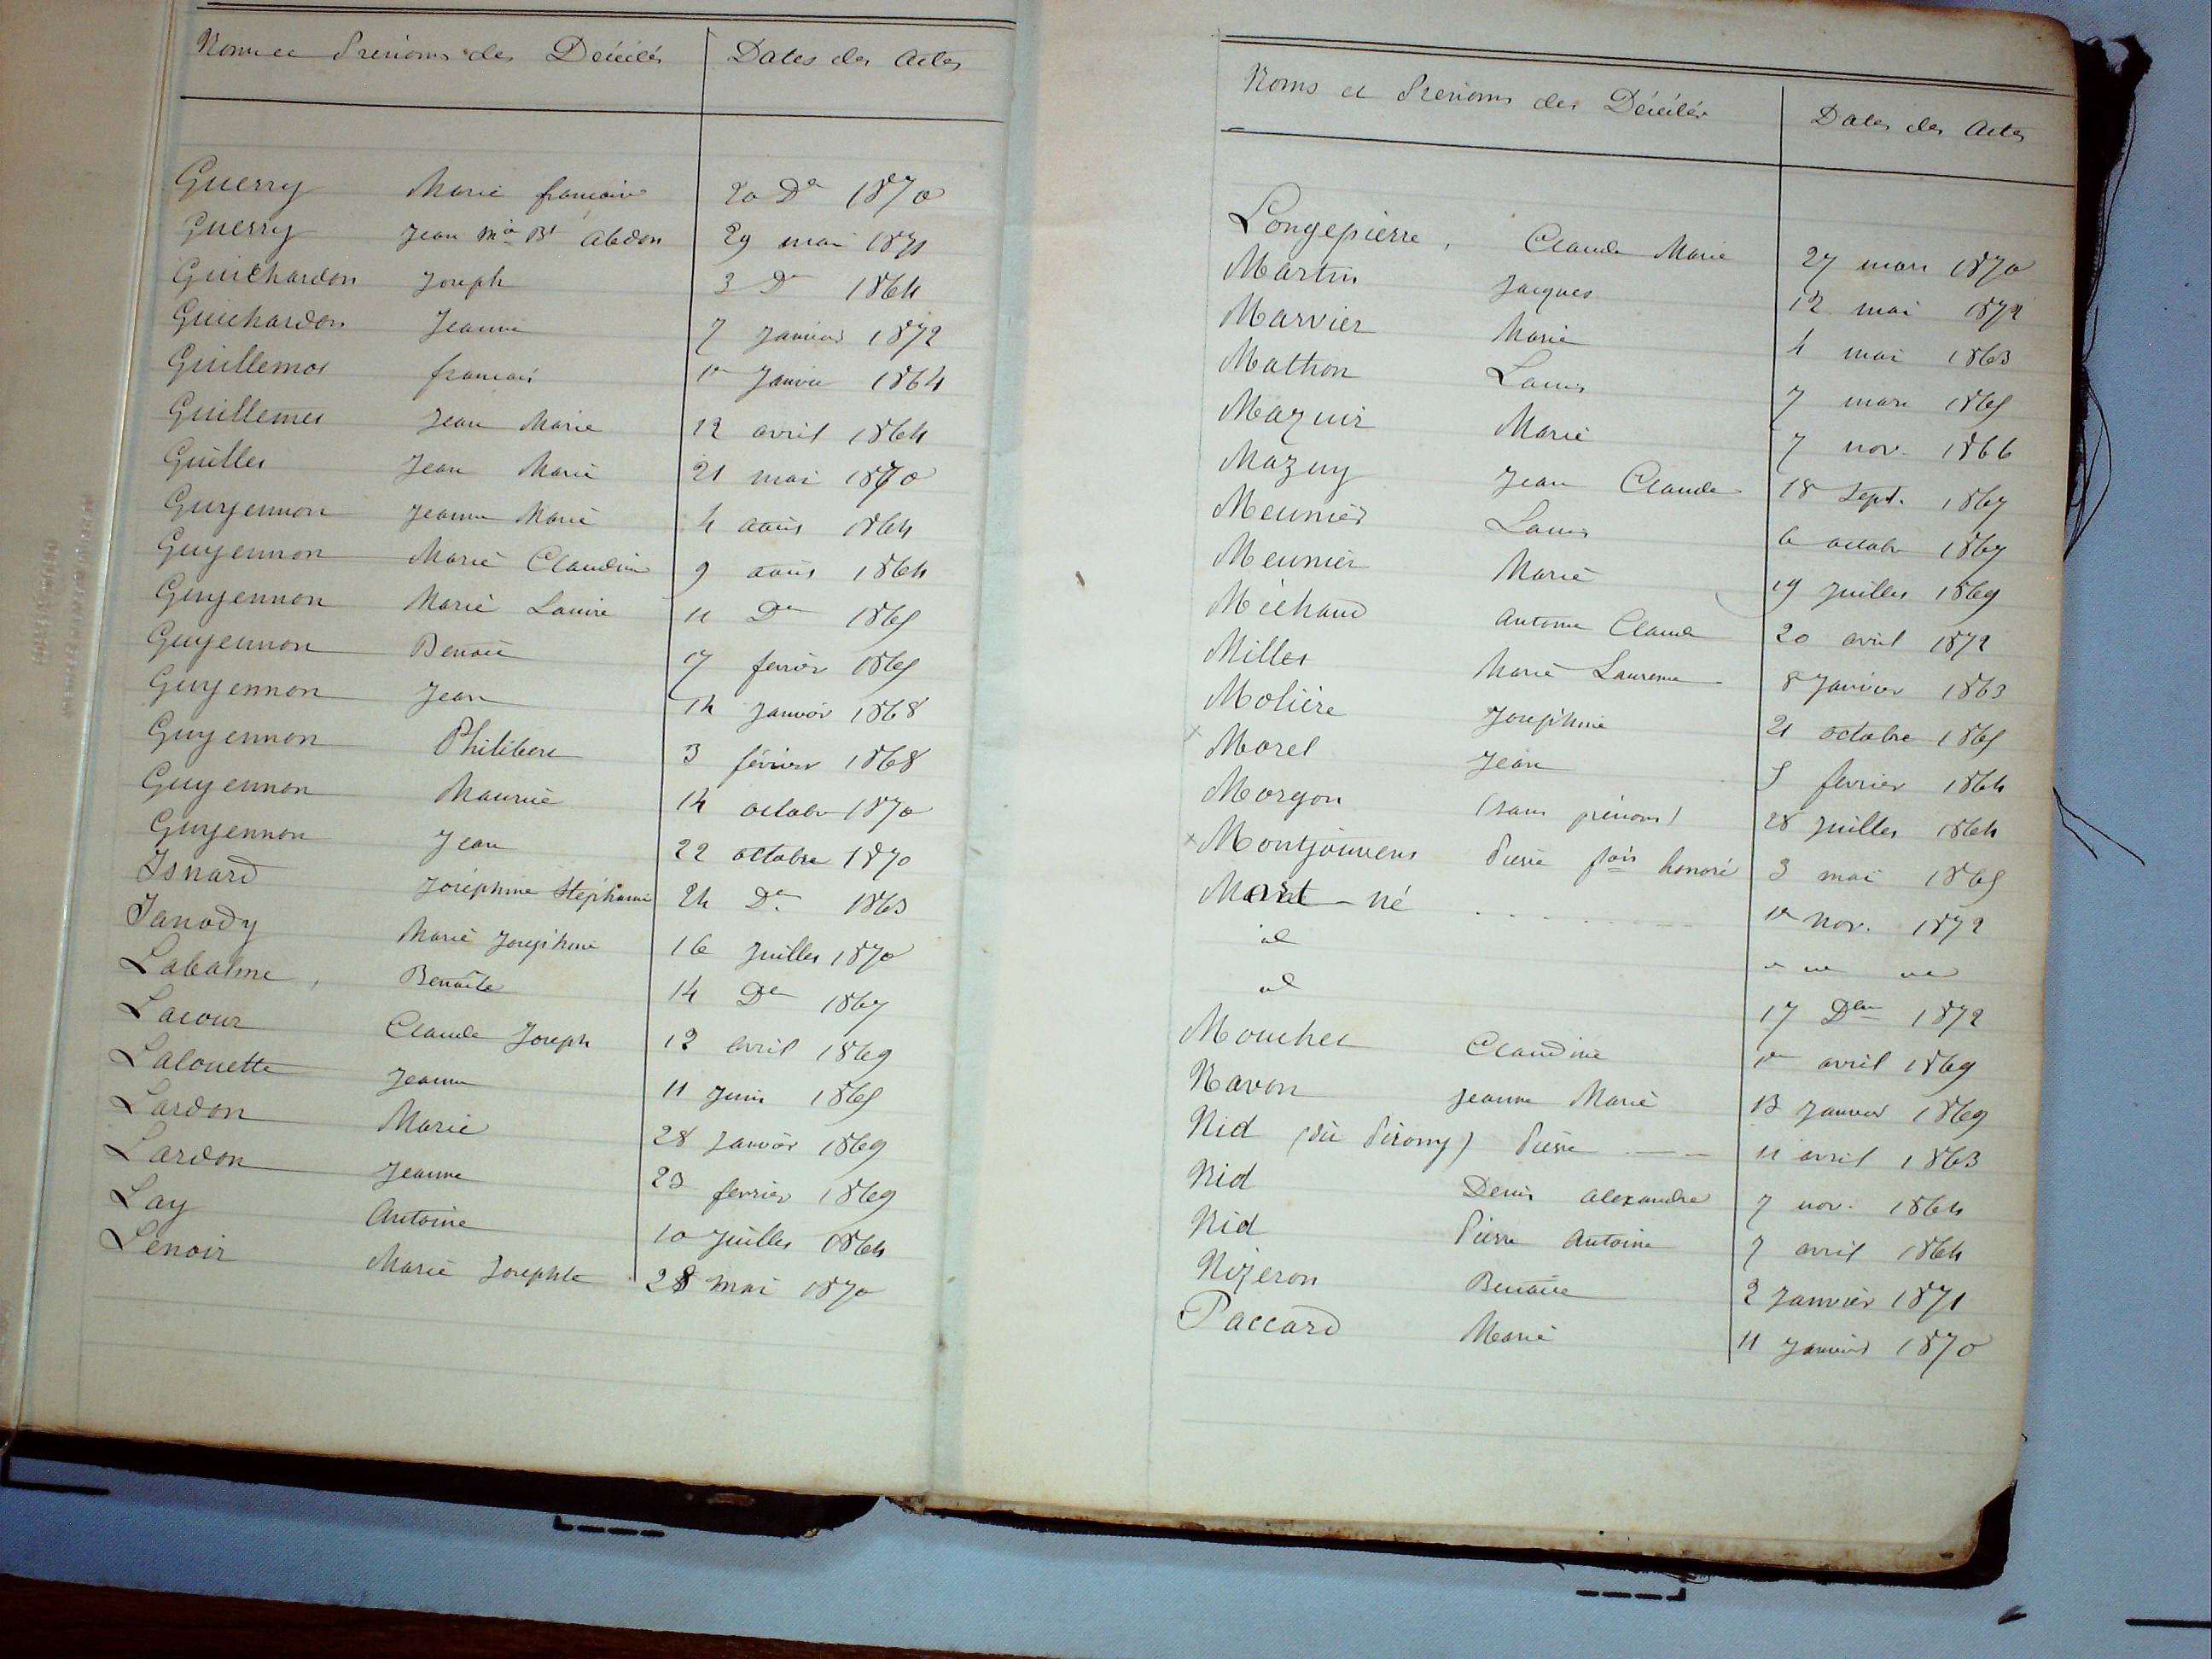 Noms et Prénoms des Décédés Dates des Actes
Guerry Marie françoise 20 De 1870
Guerry Jean Mie Bt Abdon 29 mai 1871
Guichardon Joseph 3 De 1864
Guichardon Jeanne 7 Janvier 1872
Guillemot francois 1er Janvier 1864
Guillemet Jean Marie 12 avril 1864
Guillet Jean Marie 21 mai 1870
Guyennon Jeanne Marie 4 août 1864
Guyennon Marie Claudine 9 août 1864
Guyennon Marie Louise 11 De 1865
Guyennon Benoit 17 fevrier 1865
Guyennon Jean 14 Janvier 1868
Guyennon Philibert 3 février 1868
Guyennon Maurice 14 octobre 1870
Guyennon Jean 22 octobre 1870
Isnard Joséphine Stéphanie 24 De 1863
Janody Marie Josephine 16 Juillet 1870
Labalme, Benoîte 14 De 1867
Lacour Claude Joseph 12 avril 1869
Lalouette Jeanne 11 Juin 1865
Lardon Marie 28 Janvier 1869
Lardon Jeanne 23 fevrier 1869
Lay Antoine 10 Juillet 1864
Lenoir Marie Josephte 28 mai 1870
Noms et Prénoms des Décédés Dates des Actes
Longepierre, Claude Marie 27 mars 1870
Martin Jacques 12 mai 1872
Marvier Marie 4 mai 1863
Mathon Louis 7 mars 1865
Mazuir Marie 7 nov. 1866
Mazuy Jean Claude 18 Sept. 1867
Meunier Louis 6 octobre 1867
Meunier Marie 19 Juillet 1869
Michaud Antoine Claude 20 avril 1872
Millet Marie Laurence 8 Janvier 1863
Molière Josephine 21 octobre 1865
x Morel Jean 5 fevrier 1864
Morgon (sans prénom) 28 Juillet 1864
x Montjouvens Pierre fois honoré 3 mai 1865
Mort-né 1er nov. 1872
id
id 17 Dbre 1872
Mouchet Claudine 1er avril 1869
Navon Jeanne Marie 13 Janvier 1869
Nid (dit Pirony) Pierre 11 avril 1863
Nid Denis Alexandre 7 nov. 1864
Nid Pierre Antoine 7 avril 1864
Nizeron Benoite 2 Janvier 1871
Paccard Marie 11 Janvier 1870